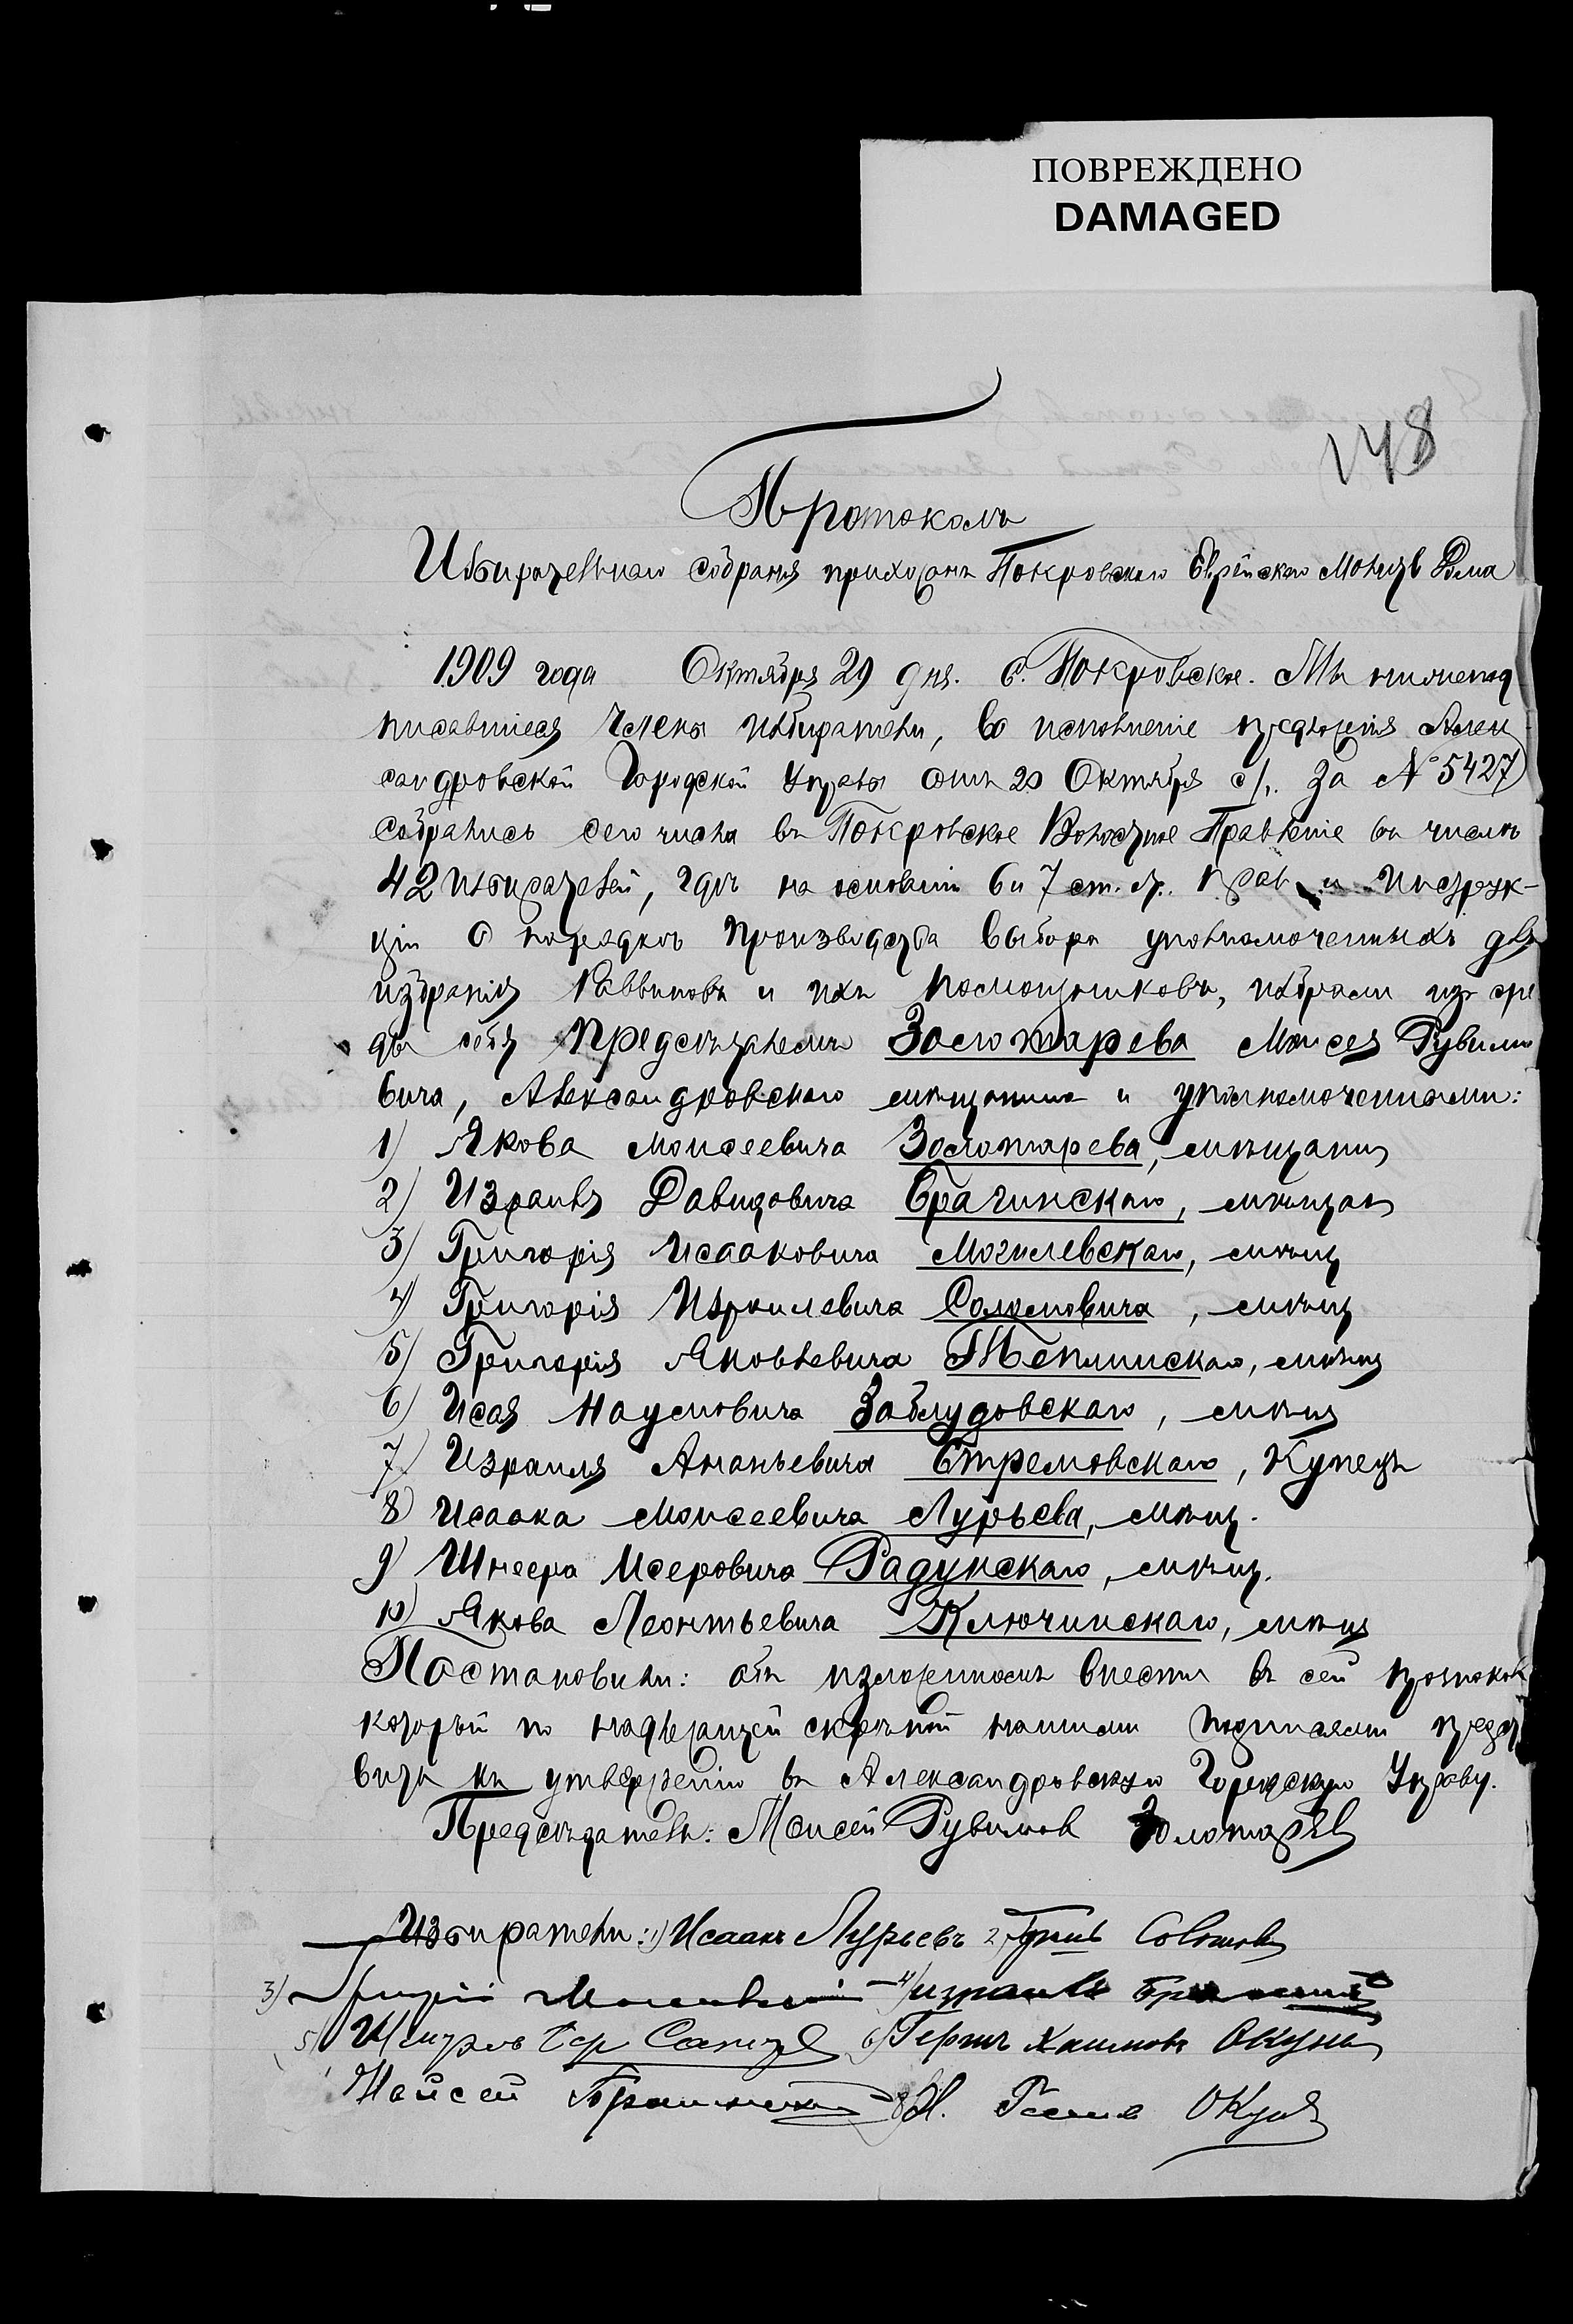 ПОВРЕЖДЕНО
DAMAGED
148
Протоколъ
Избирательнаго собранія прихожанъ Покровскаго Еврейскаго Молитв Дома
1909 года Октября 29 дня. С. Покровское. Мы нижепод
писавшіеся члены избиратели, во исполненіе предложенія Алек
сандровской Городской Управы отъ 20 Октября с/г. за № 5427
собрались сего числа въ Покровское Волостное Правленіе въ числѣ
42 избирателей, гдѣ на основаніи 6 и 7 ст. вр. прав и инструк-
ціи о порядкѣ производства выбора уполномоченныхъ для
избранія Раввиновъ и ихъ помощниковъ, избрали изъ сре
ды себя Предсѣдателемъ Золотарева Моисея Рувимо
вича, Александровскаго мѣщанина и уполномоченными:
1) Якова Моисеевича Золотарева, мѣщанин
2) Израиля Давидовича Брагинскаго, мѣщан
3) Григорія Исааковича Могилевскаго, мѣщ
4) Григорія Израилевича Соломовича, мѣщ
5) Григорія Яковлевича Теплинскаго, мѣщ
6) Исая Наумовича Заблудовскаго, мѣщ
7) Израиля Ананьевича Стремовскаго, Купецъ
8) Исаака Моисеевича Лурьева, мѣщ.
9) Шнеера Мееровича Радунскаго, мѣщ.
10) Якова Леонтьевича Ключинскаго, мѣщ
Постановили: объ изложенномъ внести въ сей протокол
который по надлежащей скрѣпой нашими подписями предст
вить къ утвержденію въ Александровскую Городскую Управу.
Предсѣдатель: Моисей Рувимов Золотарев
Избиратели: 1) Исаакъ Лурьевъ 2)
3) 4) Израиль
5) 6) Герш Хаимовъ Окунь
Мойсей 8) Н. Окунь